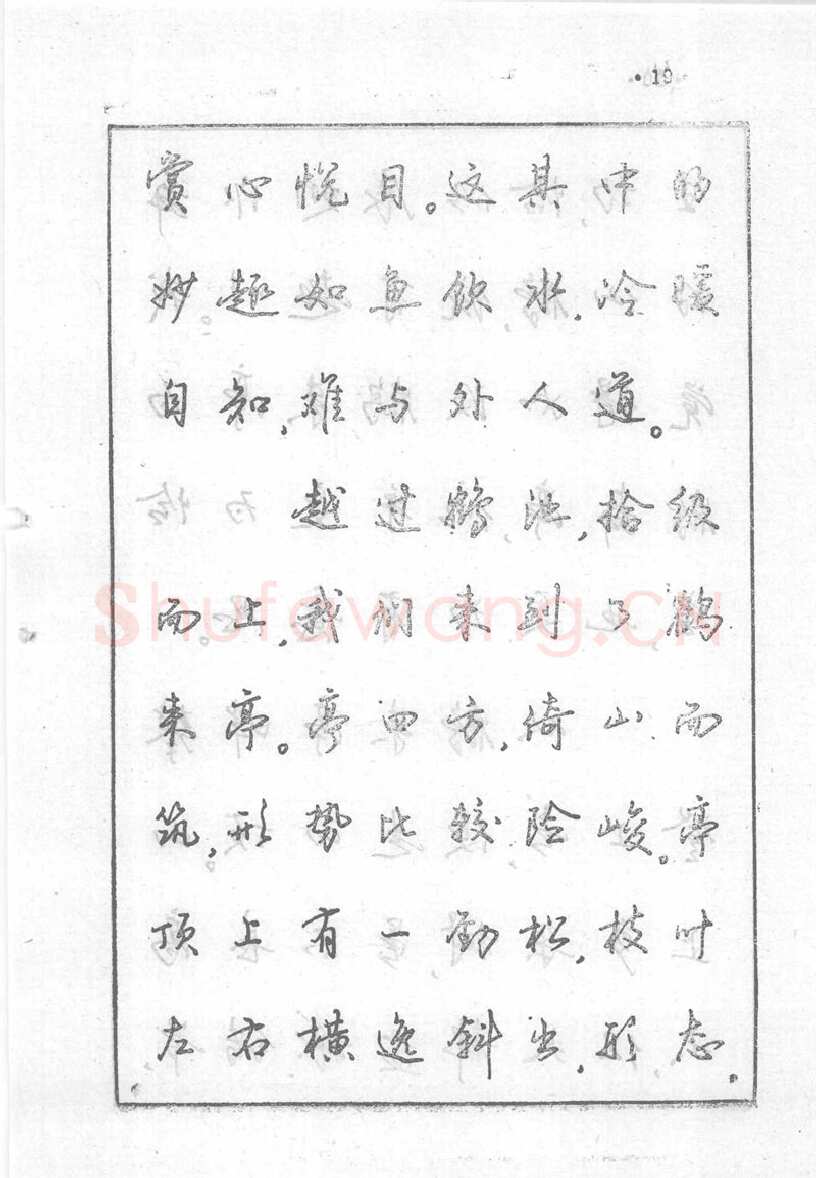 ·19·
赏心悦目。这其中的
妙趣如鱼饮水,冷暖
自知,难与外人道。
越过鹤池,拾级
而上,我们来到了鹤
来亭。亭四方,倚山而
筑,形势比较险峻。亭
顶上有一劲松,枝叶
左右横逸斜出,形态
Shufawang.CN